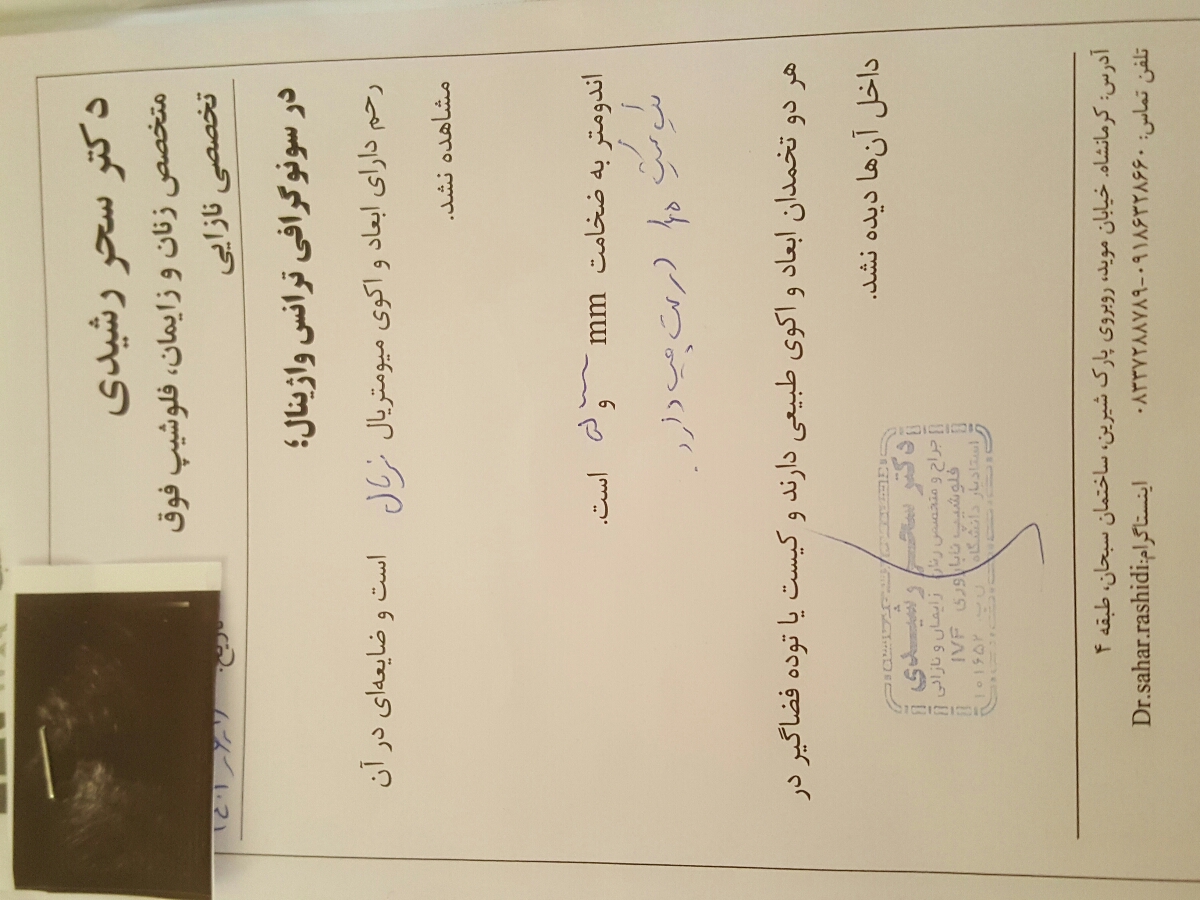 دکتر سحر رشیدی
متخصص زنان و زایمان، فلوشیپ فوق
تخصصی نازایی
تاریخ:
در سونوگرافی ترانس واژینال؛
رحم دارای ابعاد و اکوی میومتریال نرمال است و ضایعه‌ای در آن
مشاهده نشد.
اندومتر به ضخامت mm و است.
دارد.
هر دو تخمدان ابعاد و اکوی طبیعی دارند و کیست یا توده فضاگیر در
داخل آن‌ها دیده نشد.
دکتر سحر رشیدی
جراح و متخصص زنان زایمان و نازائی
فلوشیپ ناباروری IVF
استادیار دانشگاه ن.پ ۱۰۱۶۵۲
آدرس: کرمانشاه. خیابان موید، روبروی پارک شیرین، ساختمان سبحان، طبقه ۴
تلفن تماس: ۰۹۱۸۶۳۲۸۶۶۰-۰۸۳۳۷۲۸۸۷۸۹ اینستاگرام:Dr.sahar.rashidi